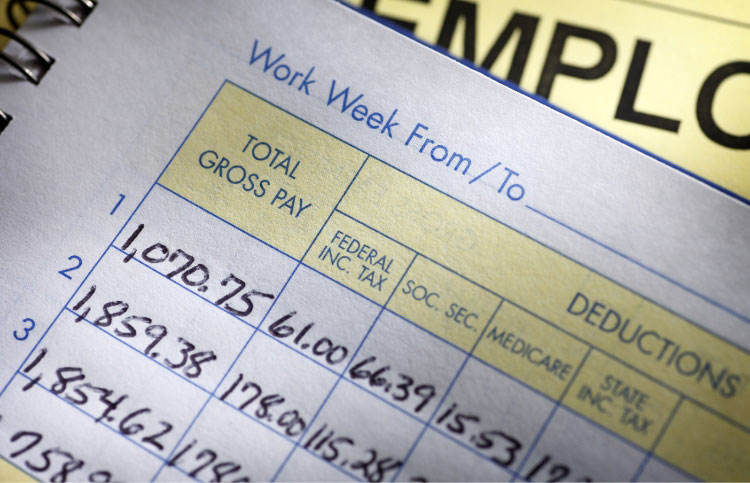 EMPLO
Work Week From/To
TOTAL
GROSS PAY
DEDUCTIONS
FEDERAL
INC. TAX
SOC. SEC.
MEDICARE
STATE
INC. TAX
1 1,070.75 61.00 66.39 15.53
2 1,859.38 178.00 115.28
3 1,854.62